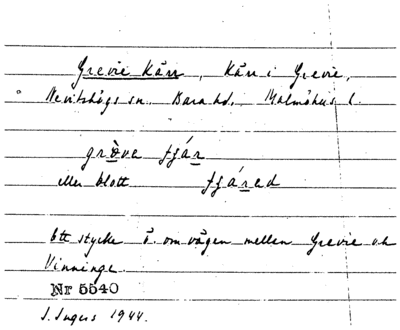 Grevie Kärr, Kärr i Grevie,
Nevitshögs sn. Bara hd. Malmöhus l.
gròva tjár
eller blott tjáred
Ett stycke ö. om vägen mellen Grevie och
Vinninge.
Nr 5540
I. Ingers 1944.